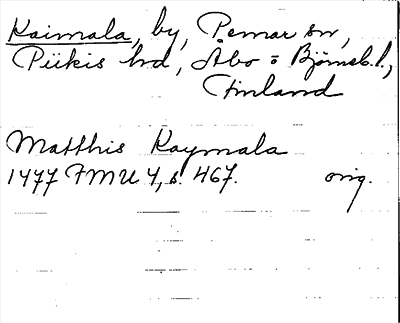 Kaimala, by, Pemar sn,
Piikis hd, Åbo o Björneb. l.,
Finland
Matthis Kaymala
1477 FMU 4, s. 467. orig.